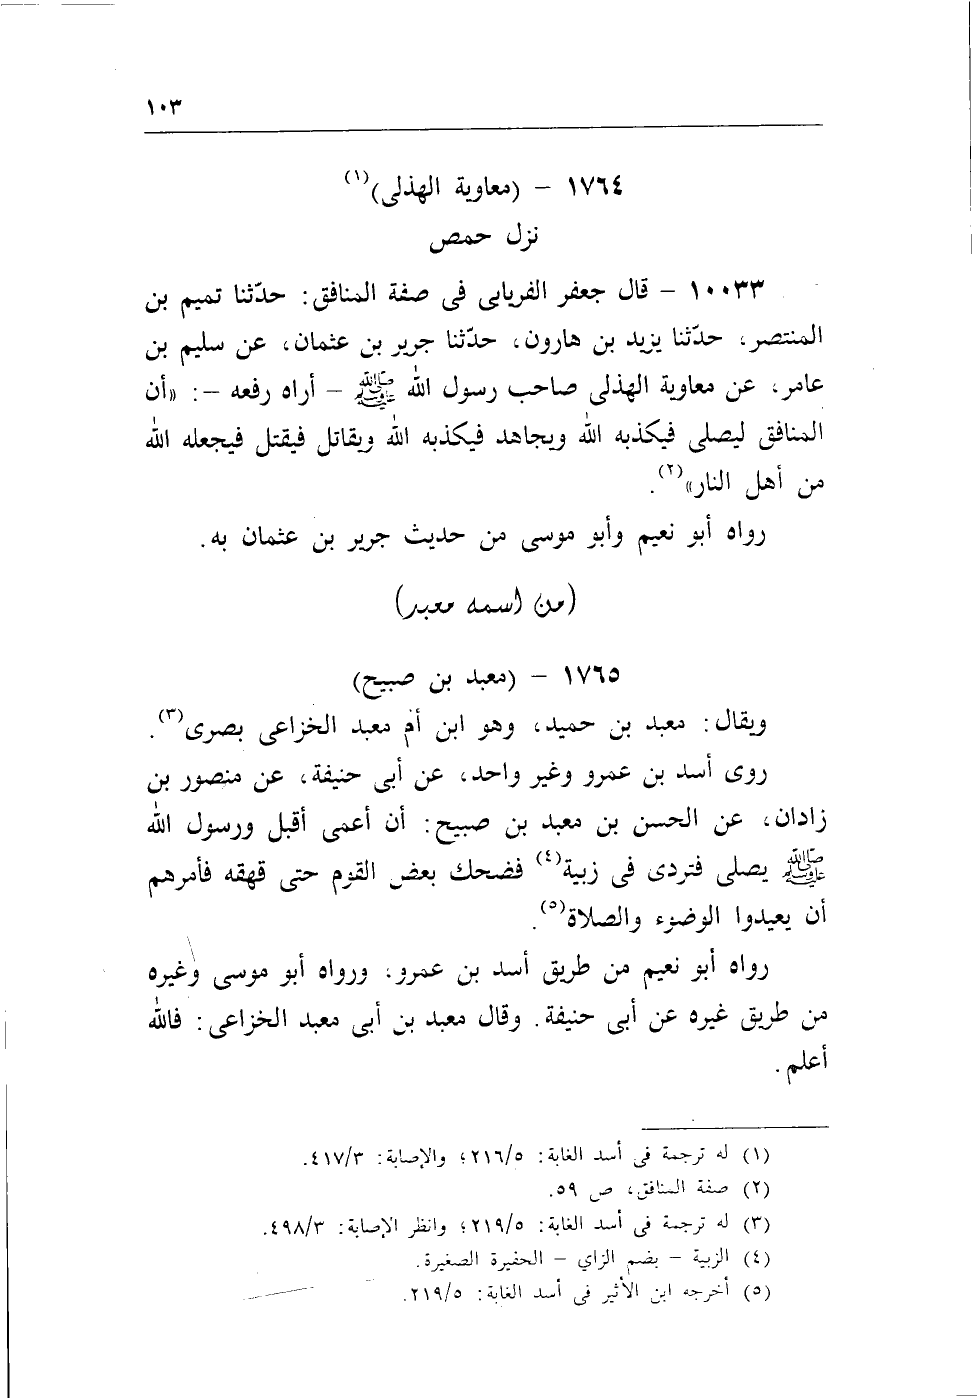 ١٠٣
١٧٦٤ - (معاوية الهذلى)(١)
نزل حمص
١٠٠٣٣ - قال جعفر الفريابى فى صفة المنافق: حدّثنا تميم بن
المنتصر، حدّثنا يزيد بن هارون، حدّثنا جرير بن عثمان، عن سليم بن
عامر، عن معاوية الهذلى صاحب رسول الله ﷺ - أراه رفعه -: «أن
المنافق ليصلى فيكذبه الله ويجاهد فيكذبه الله ويقاتل فيقتل فيجعله الله
من أهل النار»(٢).
رواه أبو نعيم وأبو موسى من حديث جرير بن عثمان به.
(من اسمه معبد)
١٧٦٥ - (معبد بن صبيح)
ويقال: معبد بن حميد، وهو ابن أم معبد الخزاعى بصرى(٣).
روى أسد بن عمرو وغير واحد، عن أبى حنيفة، عن منصور بن
زادان، عن الحسن بن معبد بن صبيح: أن أعمى أقبل ورسول الله
ﷺ يصلى فتردى فى زبية(٤) فضحك بعض القوم حتى قهقه فأمرهم
أن يعيدوا الوضوء والصلاة(٥).
رواه أبو نعيم من طريق أسد بن عمرو، ورواه أبو موسى وغيره
من طريق غيره عن أبى حنيفة. وقال معبد بن أبى معبد الخزاعى: فالله
أعلم.
(١) له ترجمة فى أسد الغابة: ٢١٦/٥؛ والإصابة: ٤١٧/٣.
(٢) صفة المنافق، ص ٥٩.
(٣) له ترجمة فى أسد الغابة: ٢١٩/٥؛ وانظر الإصابة: ٤٩٨/٣.
(٤) الزبية - بضم الزاي - الحفيرة الصغيرة.
(٥) أخرجه ابن الأثير فى أسد الغابة: ٢١٩/٥.